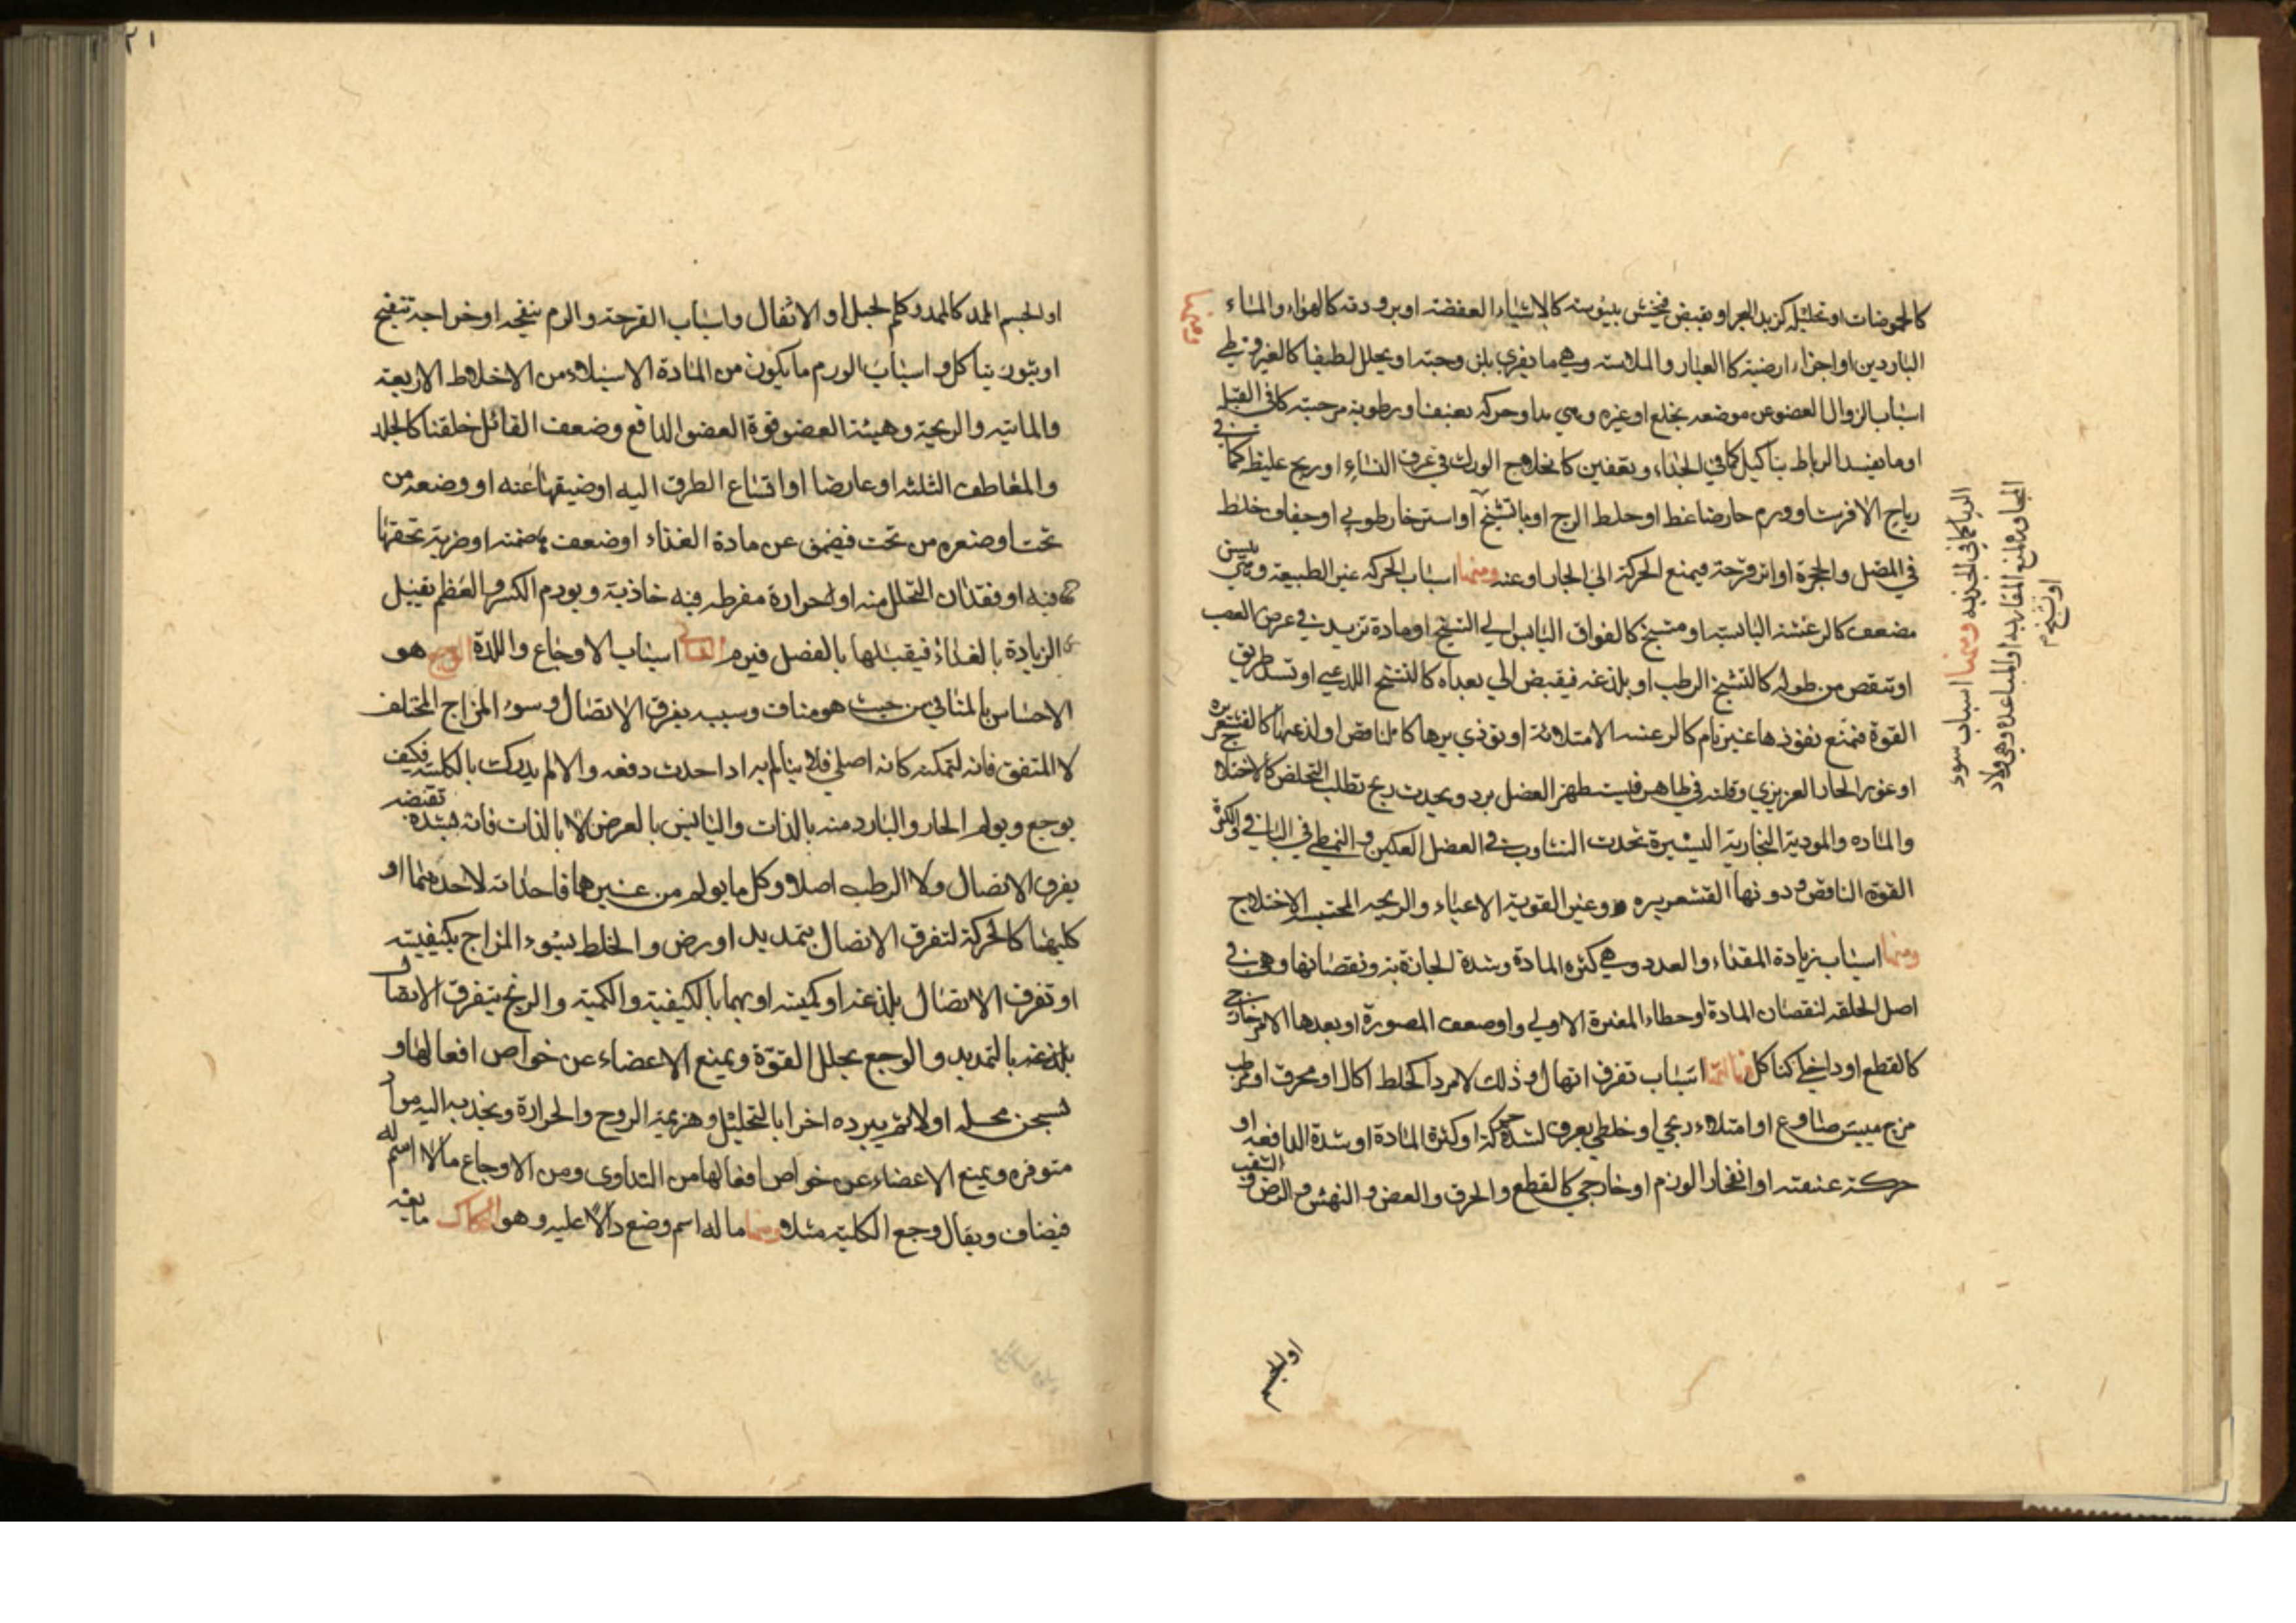 كالحموضات او تحليله كزبد البحر او قبض فيخشن بيبوسته كالاشياء العفصة او برودته كالهواء والماء
الباردين او اجزاء ارضية كالغبار والملاسة وهي ما يغري بلزوجته او يحلل لطيفا كالقيروطي ومنها
اسباب الزوال العضو عن موضعه بخلع او غيره وهي مدا وحركة بعنف او رطوبة مرخية كما في القيلة
او ما يفسد الرباط بتاكيل كما في الجذام وبعفين كانخلاع الورك في عرق النساء او ريح غليظ كما في
رياح الافرسة او ورم حار ضاغط او خلط الزج او باتشنج او استرخاء رطوبي او جفاف خلط
في المفصل والحجرة او اثر قرحة فيمنع الحركة الى الجار او عنه ومنها اسباب الحركة غير الطبيعة وهي يبس
مضعف كالرعشة اليابسة او مشنج كالفواق اليابس الى التشنج او مادة تزيد في عرض العصب
او تنقص من طوله كالتشنج الرطب او بلذغه فيقبض الى بعداه كالتشنج اللذعي او تسد طريق
القوة فتمنع نفوذها غير تام كالرعشة الامتلائية او تؤذي بردها كالنافض او لذعها كالقشعريرة
او غور الحار الغريزي وقلته في ظاهر فيستظهر العضل برد ويحدث ريح تطلب التخلص كالاختلاج
والماده والموذية البخارية اليسيرة تحدث التثاوب في العضل الفكين والتمطي في الباقي والكثرة
القوة النافض ودونها القشعريره وغير القوية الاعياء والريحية المحتبسة الاختلاج
ومنها اسباب زيادة المقداء والعدد وهي كثرة المادة وشدة الجاذبة ونقصانها وهي في
اصل الخلقة لنقصان المادة او خطاء المغيرة الاولى او ضعف المصورة او بعدها الامر خارج
كالقطع او داخلي كتاكل اسباب تفرق اتصال وذلك لامر داخلط اكال او محرق او مرطب
مرخ ميبس صادع او امتلاء ريحي او خلطي يعرق لشدة حركة او كثرة المادة او شدة الدافعة او
حركة عنيفته او انفجار الورم او خارجي كالقطع والحرق والعض والنهش والرض والثقب
الرياكما في الحزبه ومنها اسباب سوء
المجاورة لمنع المقاربة او المباعدة وهي ولاد
او تشنج م
او الجسم
٢١
او الجسم الممدد كالممدد كلم لحبل او الاثقال واسباب القرحة والرم ينفجر او خراجة تنفجر
او بثور يتاكل و اسباب الورم ما يكون من المادة الاستيلاء من الاخلاط الاربعة
والمائية والريحية وهيئة العضو قوة العضو الدافع وضعف القائل خلقنا كالجلد
والمغاطف الثلثة او عارضا او اتساع الطرق اليه او ضيقها عنه او وضعه من
تحت او صغره من تحت فيضيق عن مادة الغذاء او ضعف هاضمته او ضربة تحقنها
فيه او فقدان التحلل منه او لحرارة مفرطه فيه جاذبة ويورم الكسر والعظم تقبيل
الزيادة بالغذاء فيقبلها بالفضل فيرم اسباب الاوجاع واللذة الوجع هو
الاحساس بالمنافي من حيث هو مناف وسببه يفرق الاتصال وسوء المزاج المختلف
لا المتفق فانه لتمكنه كانه اصلي فلا يتألم به اذا حدث دفعه والالم يدركت بالكلية فكيف
يوجع ويولم الحار والبارد منه بالذات واليابس بالعرض لا بالذات فانه لشدة تقبضه
يفرق الاتصال ولا الرطب اصلا وكل ما يولم من غيرها فاحداثه لاحدهما او
كليهما كالحركة لتفرق الاتصال بتمديد او رض والخلط بسوء المزاج بكيفيته
او تفرق الاتصال بلذعه او كميته او بهما بالكيفية والكمية والريح يتفرق الاتصال
بلذعه بالتمديد والوجع يحلل القوة ويمنع الاعضاء عن خواص افعالها و
يسخن محله اولا ثم يبرده اخرا بالتحليل وهزيمة الروح والحرارة ويجذب اليه مواد
متوفره ويمنع الاعضاء عن خواص افعالها من التداوي ومن الاوجاع مالا اسم له
فيضاف ويقال وجع الكلية مثلا ومنها ما له اسم وضع دالا عليه وهو الحكاك ما يغير